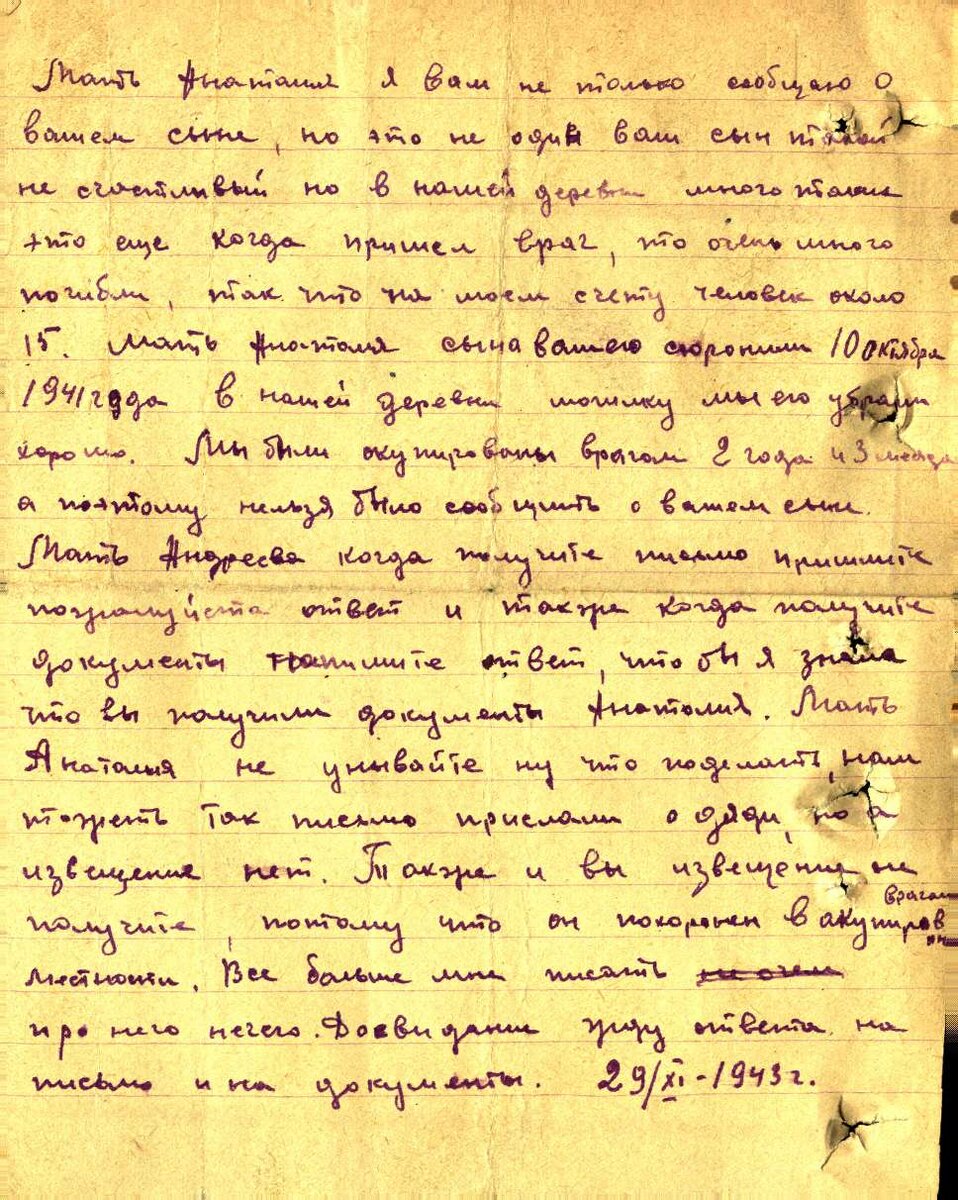 Мать Анатолия я вам не только сообщаю о
вашем сыне, но это не один ваш сын такой
не счастливый но в нашей деревни много таких
это еще когда пришел враг, то очень много
погибли, так что на моем счету человек около
15. Мать Анатолия сына вашего схоронили 10 октября
1941 года в нашей деревни могилку мы его убрали
хорошо. Мы были окупированы врагом 2 года и 3 месяца
а поэтому нельзя было сообщить о вашем сыне.
Мать Андреева когда получите письмо пришлите
пожалуйста ответ и также когда получите
документы напишите ответ, что бы я знала
что вы получили документы Анатолия. Мать
Анаталия не унывайте ну что поделать, нам
тожеть так письмо прислали о дяди, но а
извещение нет. Также и вы извещение не
получите, потому что он похоронен в акупиров врагом
местности. Все больше мне писать не очем
про него нечего. Досвидание жду ответа на
письмо и на документы. 29/XI-1943 г.